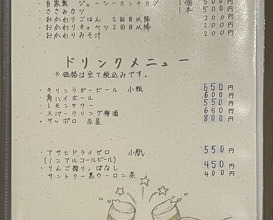 ささみカツ 500
おかわりごはん 2回目以降 200
おかわりキャベツ 2回目以降 200
おかわりみそ汁 200
ドリンクメニュー
※価格は全て税込みです。
キリンラガービール 小瓶 650円
角ハイボール 600円
レモンサワー 550円
スパークリング梅酒 600円
サッポロ 赤星 800円
アサヒドライゼロ 小瓶 550円
(ノンアルコールビール)
りんご搾りっぱなし 450円
サントリー黒ウーロン茶 400円